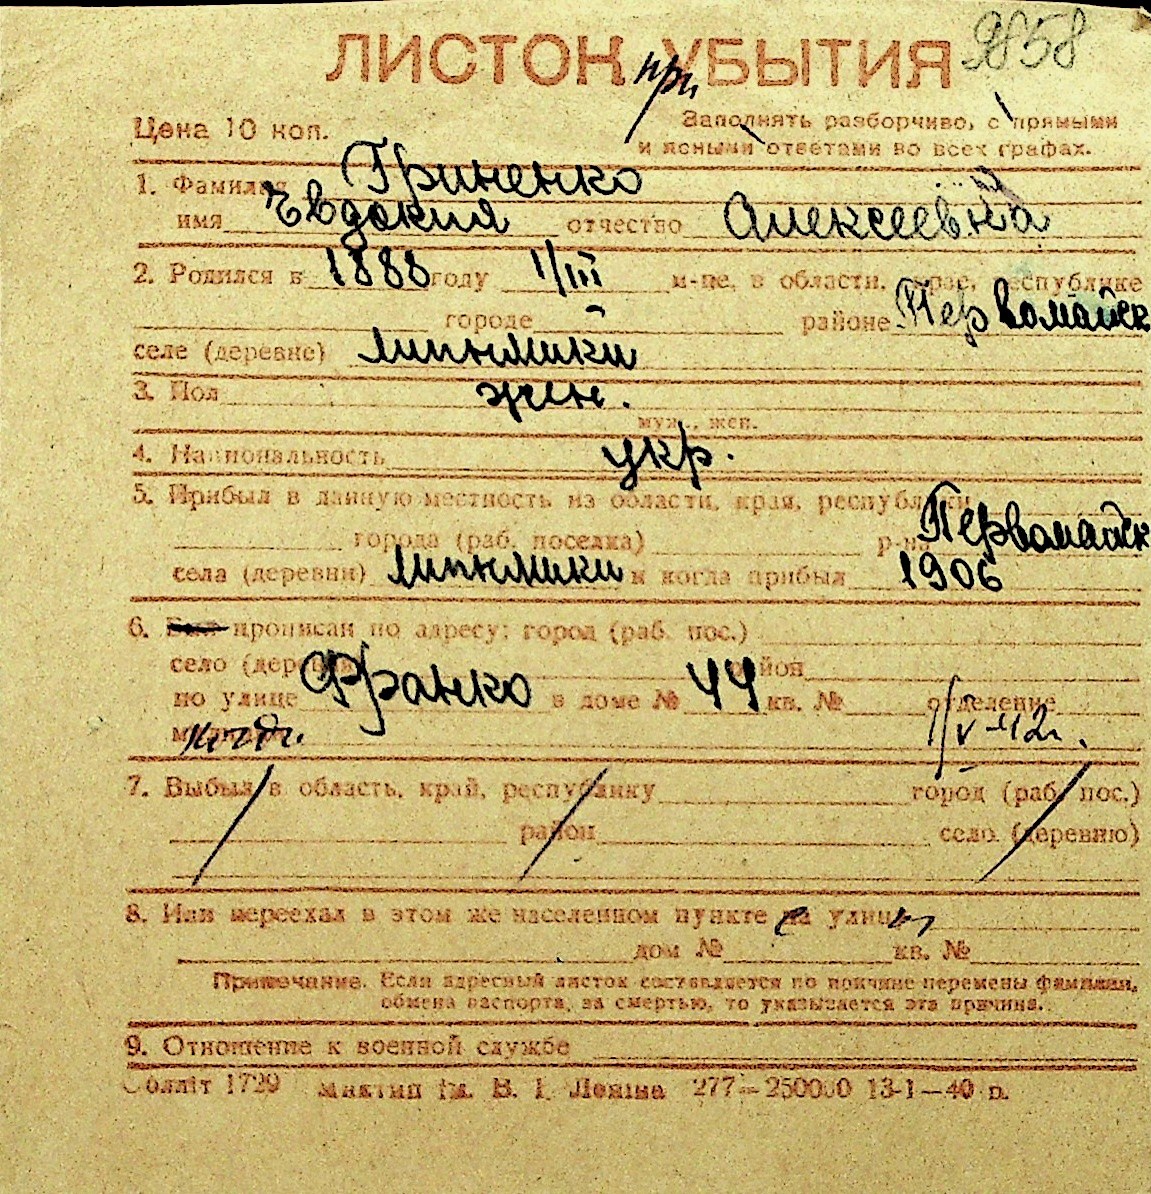 9858
ЛИСТОК при УБЫТИЯ
Цена 10 коп.
Заполнять разборчиво, с прямыми
и ясными ответами во всех графах.
1. Фамилия Гриненко
имя Евдокия отчество Алексеевна
2. Родился в 1888 году 1/III м-це, в области, крае, республике
городе районе Первомайск
селе (деревне)
3. Пол жен.
муж., жен.
4. Национальность укр.
5. Прибыл в данную местность из области, края, республики
города (раб. поселка) р-на Первомайск
села (деревни) и когда прибыл 1906
6. Был прописан по адресу: город (раб. пос.)
село (деревня) район
по улице Франко в доме № 44 кв. № отделение
милиции 1/V-42г.
7. Выбыл в область, край, республику город (раб. пос.)
район село (деревню)
8. Или переехал в этом же населенном пункте на улицу
дом № кв. №
Примечание. Если адресный листок составляется по причине перемены фамилии,
обмена паспорта, за смертью, то указывается эта причина.
9. Отношение к военной службе
Обліт 1729 Миктип ім. В. І. Леніна 277—250000 13-1—40 р.